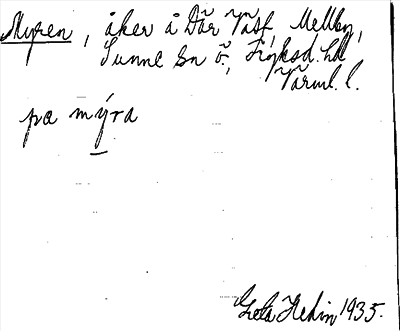 Myren, åker å Där Väst, Mellby,
Sunne sn ö., Fryksd. hd
Värml. l.
pa mýra
Greta Hedin 1935.